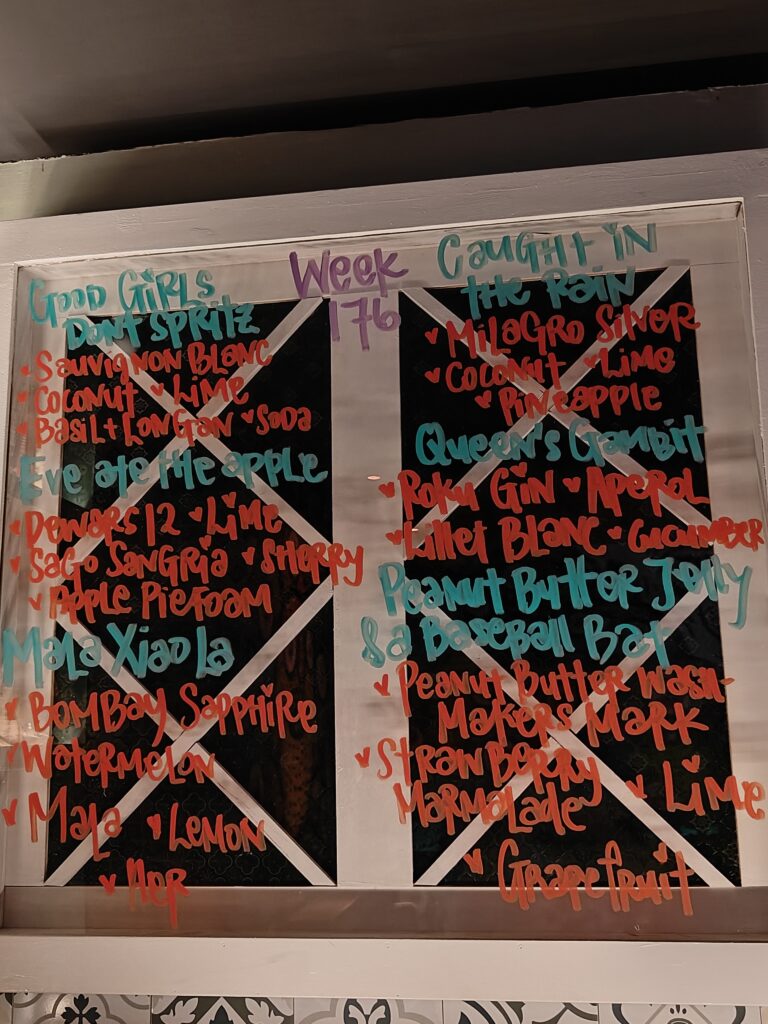 Week
176
Good Girls
Dont Spritz
Sauvignon Blanc
Coconut Lime
Basil + Longan Soda
Eve ate the apple
Dewars 12 Lime
Sago Sangria Sherry
Apple Pie Foam
Mala Xiao La
Bombay Sapphire
Watermelon
Mala Lemon
Her
Caught in
the Rain
Milagro Silver
Coconut Lime
Pineapple
Queen's Gambit
Roku Gin Aperol
Lillet Blanc Cucumber
Peanut Butter Jelly
& a Baseball Bat
Peanut Butter Wash-
Makers Mark
Strawberry
Marmalade Lime
Grapefruit